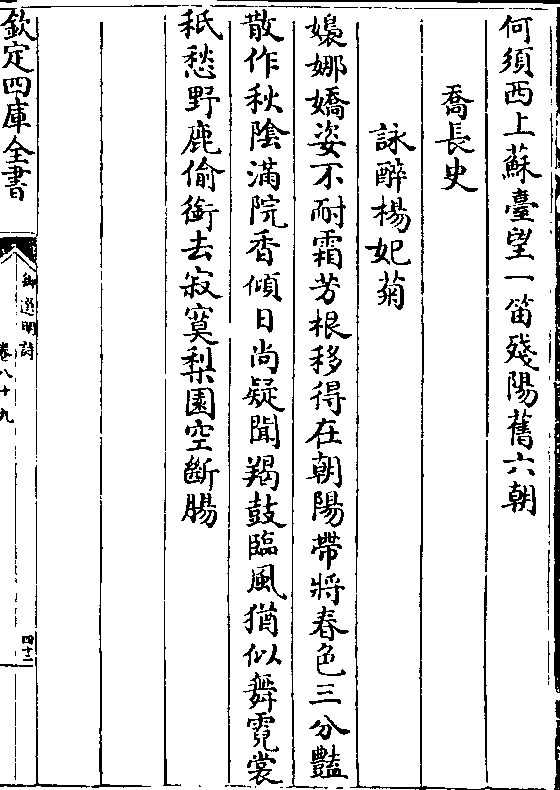 何須西上蘇臺望一笛殘陽舊六朝
喬長史
詠醉楊妃菊
嬝娜嬌姿不耐霜芳根移得在朝陽帶將春色三分豔
散作秋陰滿院香傾日尚疑聞羯鼓臨風猶似舞霓裳
秖愁野鹿偷銜去寂寞梨園空斷腸
欽定四庫全書
御選明詩
卷八十九
四十二